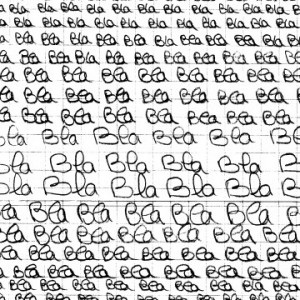 Bla Bla Bla Bla Bla Bla Bla Bla Bla Bla Bla Bla Bla
Bla Bla Bla Bla Bla Bla Bla Bla Bla Bla Bla Bla
Bla Bla Bla Bla Bla Bla Bla Bla Bla Bla
Bla Bla Bla Bla Bla Bla Bla Bla
Bla Bla Bla Bla Bla Bla Bla
Bla Bla Bla Bla Bla Bla Bla
Bla Bla Bla Bla Bla Bla
Bla Bla Bla Bla Bla
Bla Bla Bla Bla
Bla Bla Bla Bla
Bla Bla Bla Bla Bla
Bla Bla Bla Bla Bla Bla
Bla Bla Bla Bla Bla Bla Bla
Bla Bla Bla Bla Bla Bla Bla
Bla Bla Bla Bla Bla Bla Bla Bla